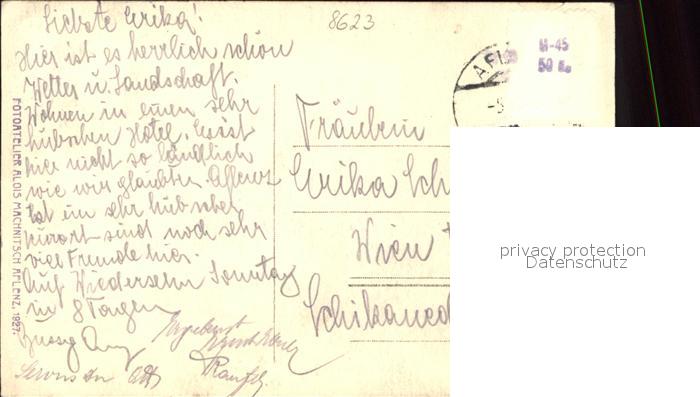 8623
Liebste Erika!
Hier ist es herrlich schön
Wetter u. Landschaft.
Wohnen in einem sehr
hübschen Hotel,
hier nicht so ländlich
wie wir glaubten. Aflenz
ist ein sehr hübscher
Kurort sind noch sehr
viel Fremde hier.
Auf Wiedersehn Sonntag
in 8 Tagen
FOTOATELIER ALOIS MACHNITSCH AFLENZ, 1927.
Fräulein
Erika Sch
Wien
Schikaned
AFL
M-45
50 a.
privacy protection
Datenschutz